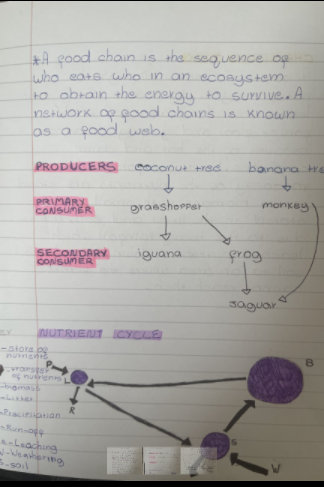 *A food chain is the sequence of
who eats who in an ecosystem
to obtain the energy to survive. A
network of food chains is known
as a food web.
PRODUCERS coconut tree banana tre
PRIMARY
CONSUMER grasshopper monkey
SECONDARY
CONSUMER iguana frog
jaguar
NUTRIENT CYCLE
EY
-store of
nutrients
-transfer
of nutrients
-biomass
-Litter
-Precipitation
-Run-off
-Leaching
W-Weathering
S-soil
P
L
R
B
S
W